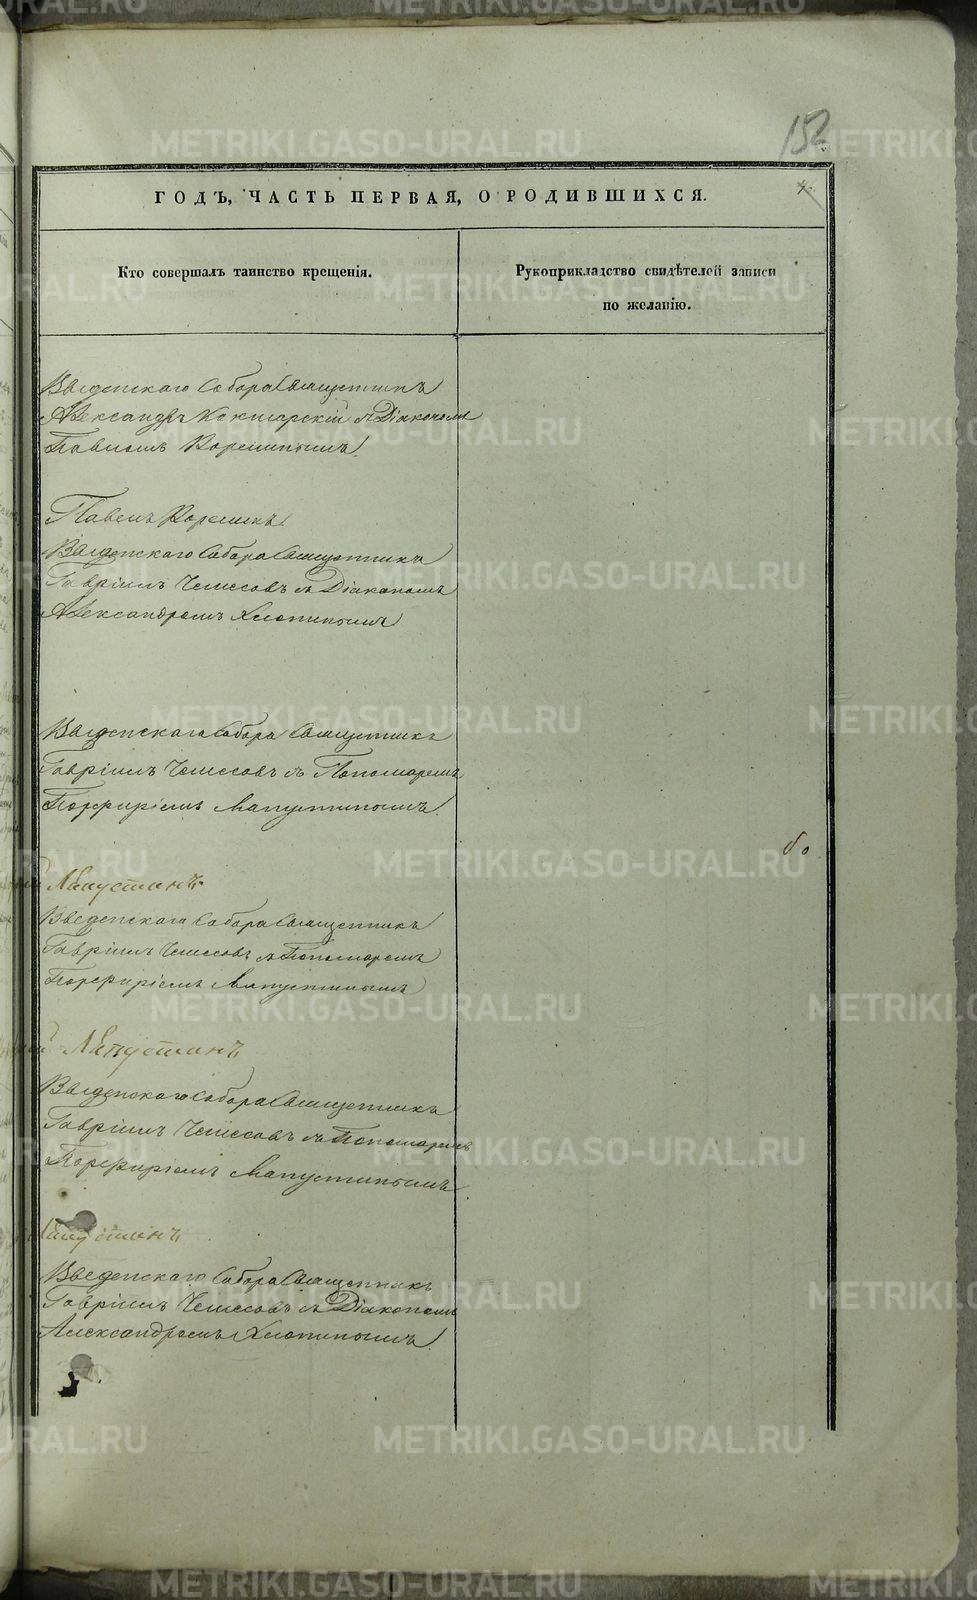 152
ГОДЪ, ЧАСТЬ ПЕРВАЯ, О РОДИВШИХСЯ.
Кто совершалъ таинство крещенія.
Рукоприкладство свидѣтелей записи
по желанію.
Введенскаго Собора Священникъ
Александръ съ Діакономъ
Павломъ
Павелъ
Введенскаго Собора Священникъ
Гавріилъ съ Діакономъ
Александромъ Хлопинымъ
Введенскаго Собора Священникъ
Гавріилъ съ Пономаремъ
Порфиріемъ Лапустинымъ
Лапустинъ
Введенскаго Собора Священникъ
Гавріилъ съ Пономаремъ
Порфиріемъ Лапустинымъ
Лапустинъ
Введенскаго Собора Священникъ
Гавріилъ съ Пономаремъ
Порфиріемъ Лапустинымъ
Введенскаго Собора Священникъ
Гавріилъ съ Діакономъ
Александромъ Хлопинымъ
METRIKI.GASO-URAL.RU